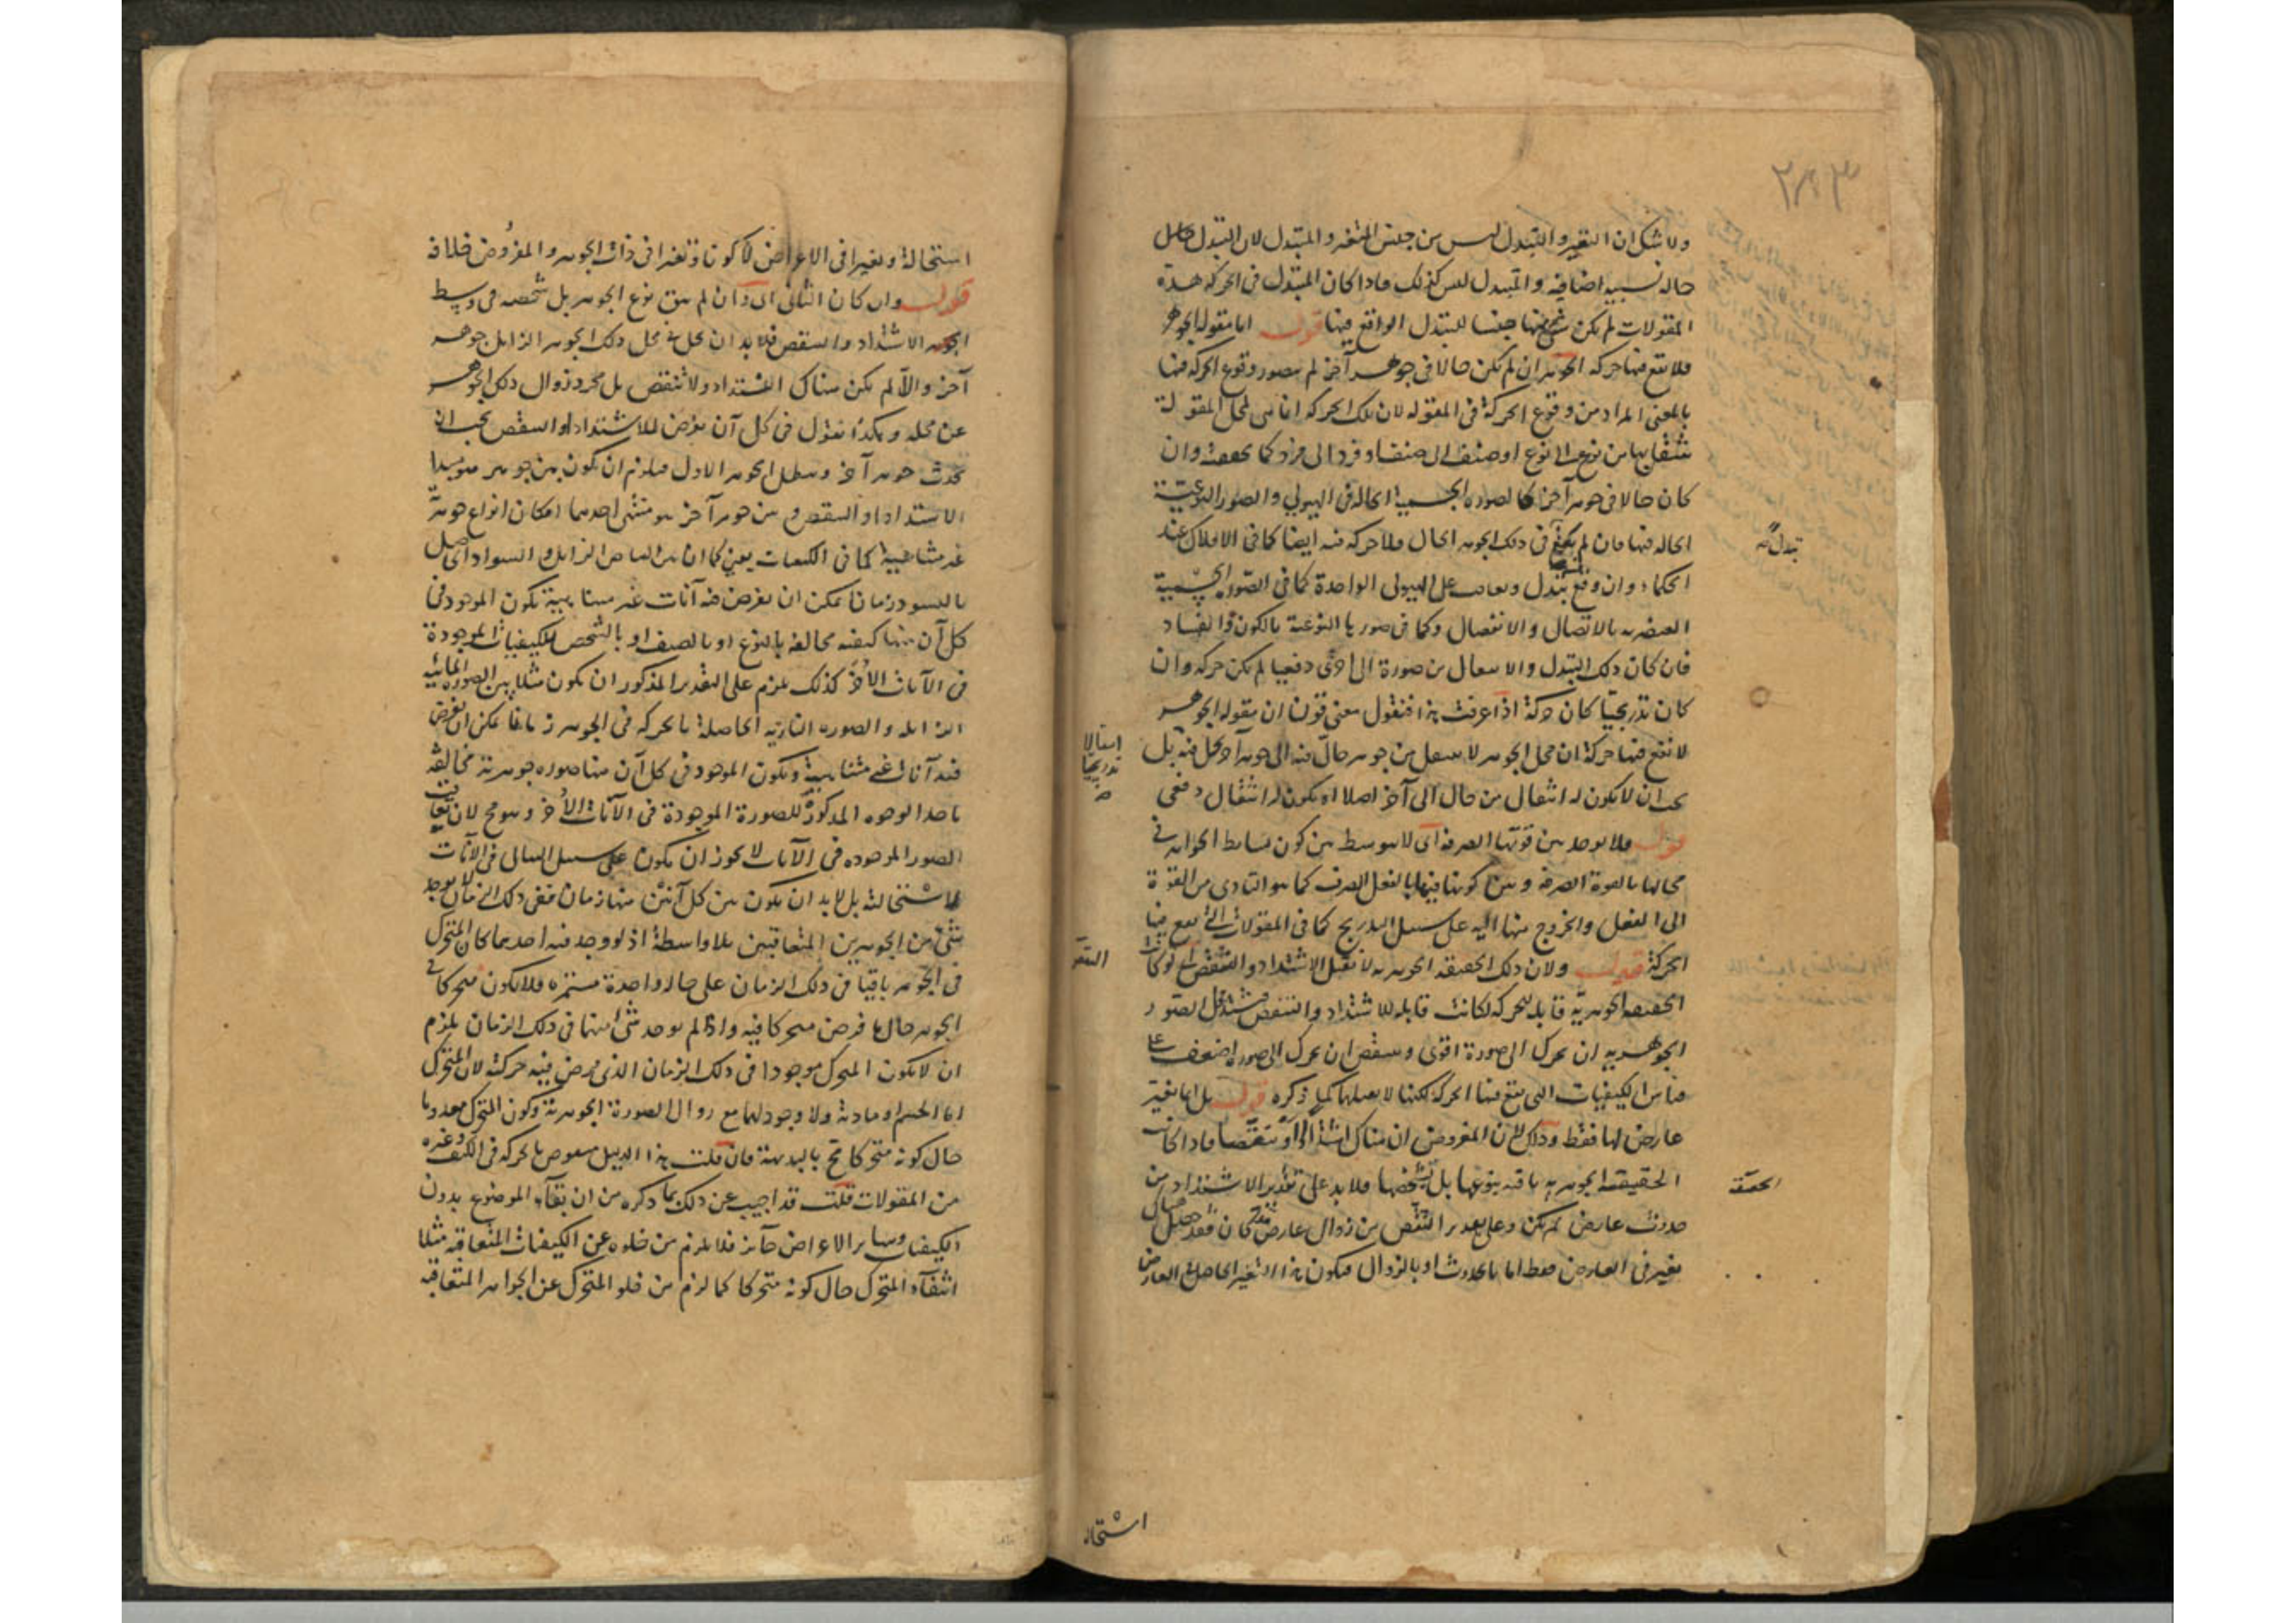 ٢٨٣
ولا شك ان التغير والتبدل ليس من جنس المتغير والمتبدل لان التبدل
حالة نسبية اضافية والمتبدل ليس كذلك فاذا كان المتبدل في الحركة هذه
المقولات لم يكن شئ منها جنسا للتبدل الواقع فيها قوله اما مقولة الجوهر
فلا يقع فيها حركة الجوهر ان لم يكن حالا في جوهر آخر لم يتصور وقوع الحركة فيها
بالمعنى المراد من وقوع الحركة في المقولة لان تلك الحركة انما هي لمحل المقولة
ينتقل بها من نوع الى نوع او صنف الى صنف او فرد الى فرد كما تحققت وان
كان حالا في جوهر آخر كالصورة الجسمية الحالة في الهيولى والصور النوعية
الحالة فيها فان لم يقع في ذلك الجوهر الحال فلا حركة فيه ايضا كما في الافلاك عند
تبدل صح
الحكماء وان وقع تبدل وتعاقب على الهيولى الواحدة كما في الصورة الجسمية
العنصرية بالاتصال والانفصال وكما في صورها النوعية بالكون والفساد
فان كان ذلك التبدل والانتقال من صورة الى اخرى دفعيا لم يكن حركة وان
كان تدريجيا كان حركة اذا عرفت هذا فنقول معنى قوله ان مقولة الجوهر
لا تقع فيها حركة ان محل الجوهر لا ينتقل من جوهر حال فيه الى جوهر آخر يحل فيه بل
انتقالا
تدريجيا
صح
يجب ان لا يكون له انتقال من حال الى آخر اصلا او يكون له انتقال دفعي
قوله فلا يوجد بين قوتها الصرفة اى لا يتوسط بين كون بسائط الجواهر في
محالها بالقوة الصرفة وبين كونها فيها بالفعل الصرف كما هو التادى من القوة
الى الفعل والخروج منها اليه على سبيل التدريج كما في المقولات التى تقع فيها
الحركة قوله ولان ذلك الحقيقة الجوهرية لا تقبل الاشتداد والتنقص اى لو كانت
الحقيقة الجوهرية قابلة للحركة لكانت قابلة للاشتداد والتنقص فتشتد في الصور
الجوهرية ان تحرك الى صورة اقوى وتنقص ان تحرك الى صورة اضعف على
قياس الكيفيات التى تقع فيها الحركة لكنها لا تقبلهما كما ذكره قوله بل انما تغير
عارض لها فقط وذلك لان المفروض ان هناك اشتدادا او تنقصا فاذا كانت
الحقيقة الجوهرية باقية بنوعها بل بشخصها فلا بد على تقدير الاشتداد من
الحقيقة
حدوث عارض لم يكن وعلى تقدير التنقص من زوال عارض قد كان فقد حصل هناك
تغير في العارض فقط اما بالحدوث او بالزوال فيكون هذا التغير الحاصل في العارض
استحالة
استحالة وتغيرا في الاعراض لا كونا وتغيرا في ذات الجوهر والمفروض خلافه
قوله وان كان الثانى اى وان لم يبق نوع الجوهر بل شخصه في وسط
الاشتداد والتنقص فلا بد ان يحل في محل ذلك الجوهر الزايل جوهر
آخر والا لم يكن هناك اشتداد ولا تنقص بل مجرد زوال ذلك الجوهر
عن محله وهكذا نقول في كل آن يفرض للاشتداد او التنقص يجب ان
يحدث جوهر آخر ويبطل الجوهر الاول فيلزم ان يكون بين جوهر هو مبدا
الاشتداد او التنقص وبين جوهر آخر هو منتهى احدهما امكان انواع جوهرية
غير متناهية كما في الكيفيات يعنى كما ان بين البياض الزايل والسواد الحاصل
بالتسود زمانا يمكن ان يفرض فيه آنات غير متناهية يكون الموجود في
كل آن منها كيفية مخالفة بالنوع او بالصنف او بالشخص للكيفيات الموجودة
في الآنات الأخر كذلك يلزم على التقدير المذكور ان يكون مثلا بين الصورة المائية
الزايلة والصورة النارية الحاصلة بالحركة في الجوهر زمانا يمكن ان يفرض
فيه آنات غير متناهية ويكون الموجود في كل آن منها صورة جوهرية مخالفة
باحد الوجوه المذكورة للصورة الموجودة في الآنات الأخر وهو مح لان تعاقب
الصور الموجودة في الآنات لا يجوز ان يكون على سبيل التتالى في الآنات
لاستحالته بل لا بد ان يكون بين كل آنين منها زمان ففى ذلك الزمان لا يوجد
شئ من الجوهرين المتعاقبين بلا واسطة اذ لو وجد فيه احدهما كان المتحرك
في الجوهر باقيا في ذلك الزمان على حالة واحدة مستمرة فلا يكون متحركا في
الجوهر حال ما فرض متحركا فيه واذا لم يوجد شئ منهما في ذلك الزمان يلزم
ان لا يكون المتحرك موجودا في ذلك الزمان الذى فرض فيه حركته لان المتحرك
اما الجسم او مادته ولا وجود لهما مع زوال الصورة الجوهرية وكون المتحرك معدوما
حال كونه متحركا مح بالبديهة فان قلت هذا الدليل منقوض بالحركة في الكيف وغيره
من المقولات قلت قد اجيب عن ذلك بما ذكره من ان بقاء الموضوع بدون
الكيفيات وساير الاعراض جائز فلا يلزم من خلوه عن الكيفيات المتعاقبة مثلا
انتفاء المتحرك حال كونه متحركا كما لزم من خلو المتحرك عن الجواهر المتعاقبة